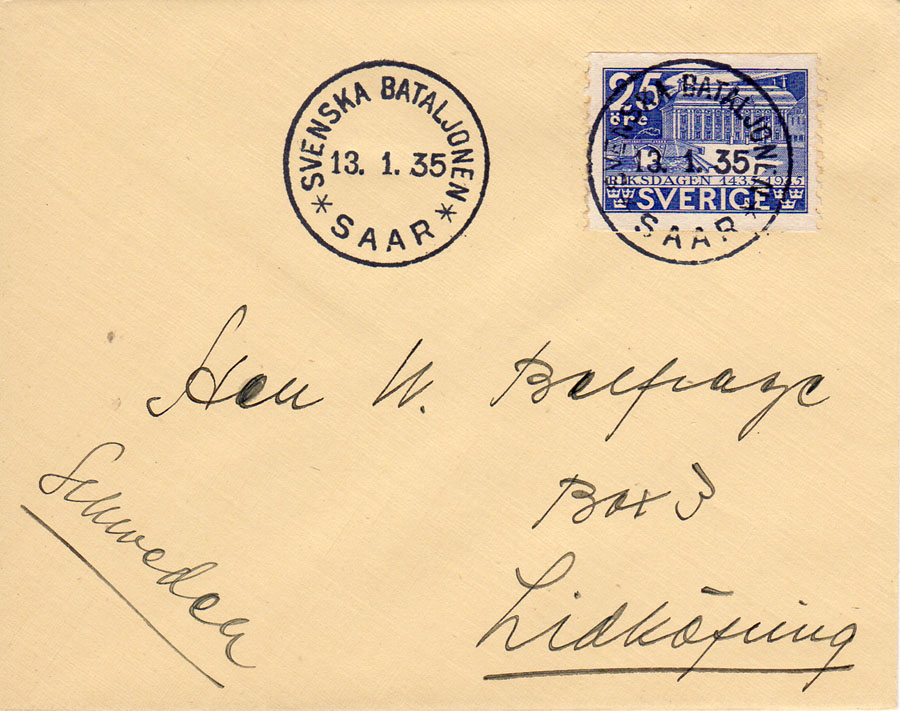 SVENSKA BATALJONEN
13. 1. 35
* SAAR *
25
öre
RIKSDAGEN 1435-1935
SVERIGE
SVENSKA BATALJONEN
13. 1. 35
* SAAR *
Herr W. Belfrage
Box 3
Lidköping
Schweden